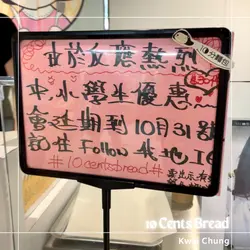 10分麵包
由於反應熱烈
中,小學生優惠
會延期到10月31號
記住 Follow 我地 IG
#10centsbread#
10 Cents Bread
Kwai Chung